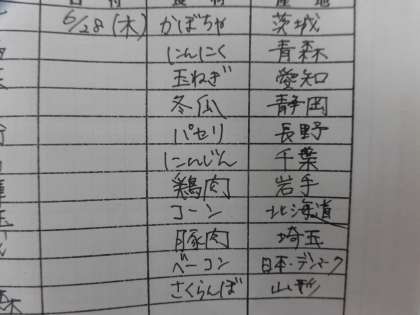 日付 食材 産地
6/28(木) かぼちゃ 茨城
にんにく 青森
玉ねぎ 愛知
冬瓜 静岡
パセリ 長野
にんじん 千葉
鶏肉 岩手
コーン 北海道
豚肉 埼玉
ベーコン 日本・デンマーク
さくらんぼ 山形